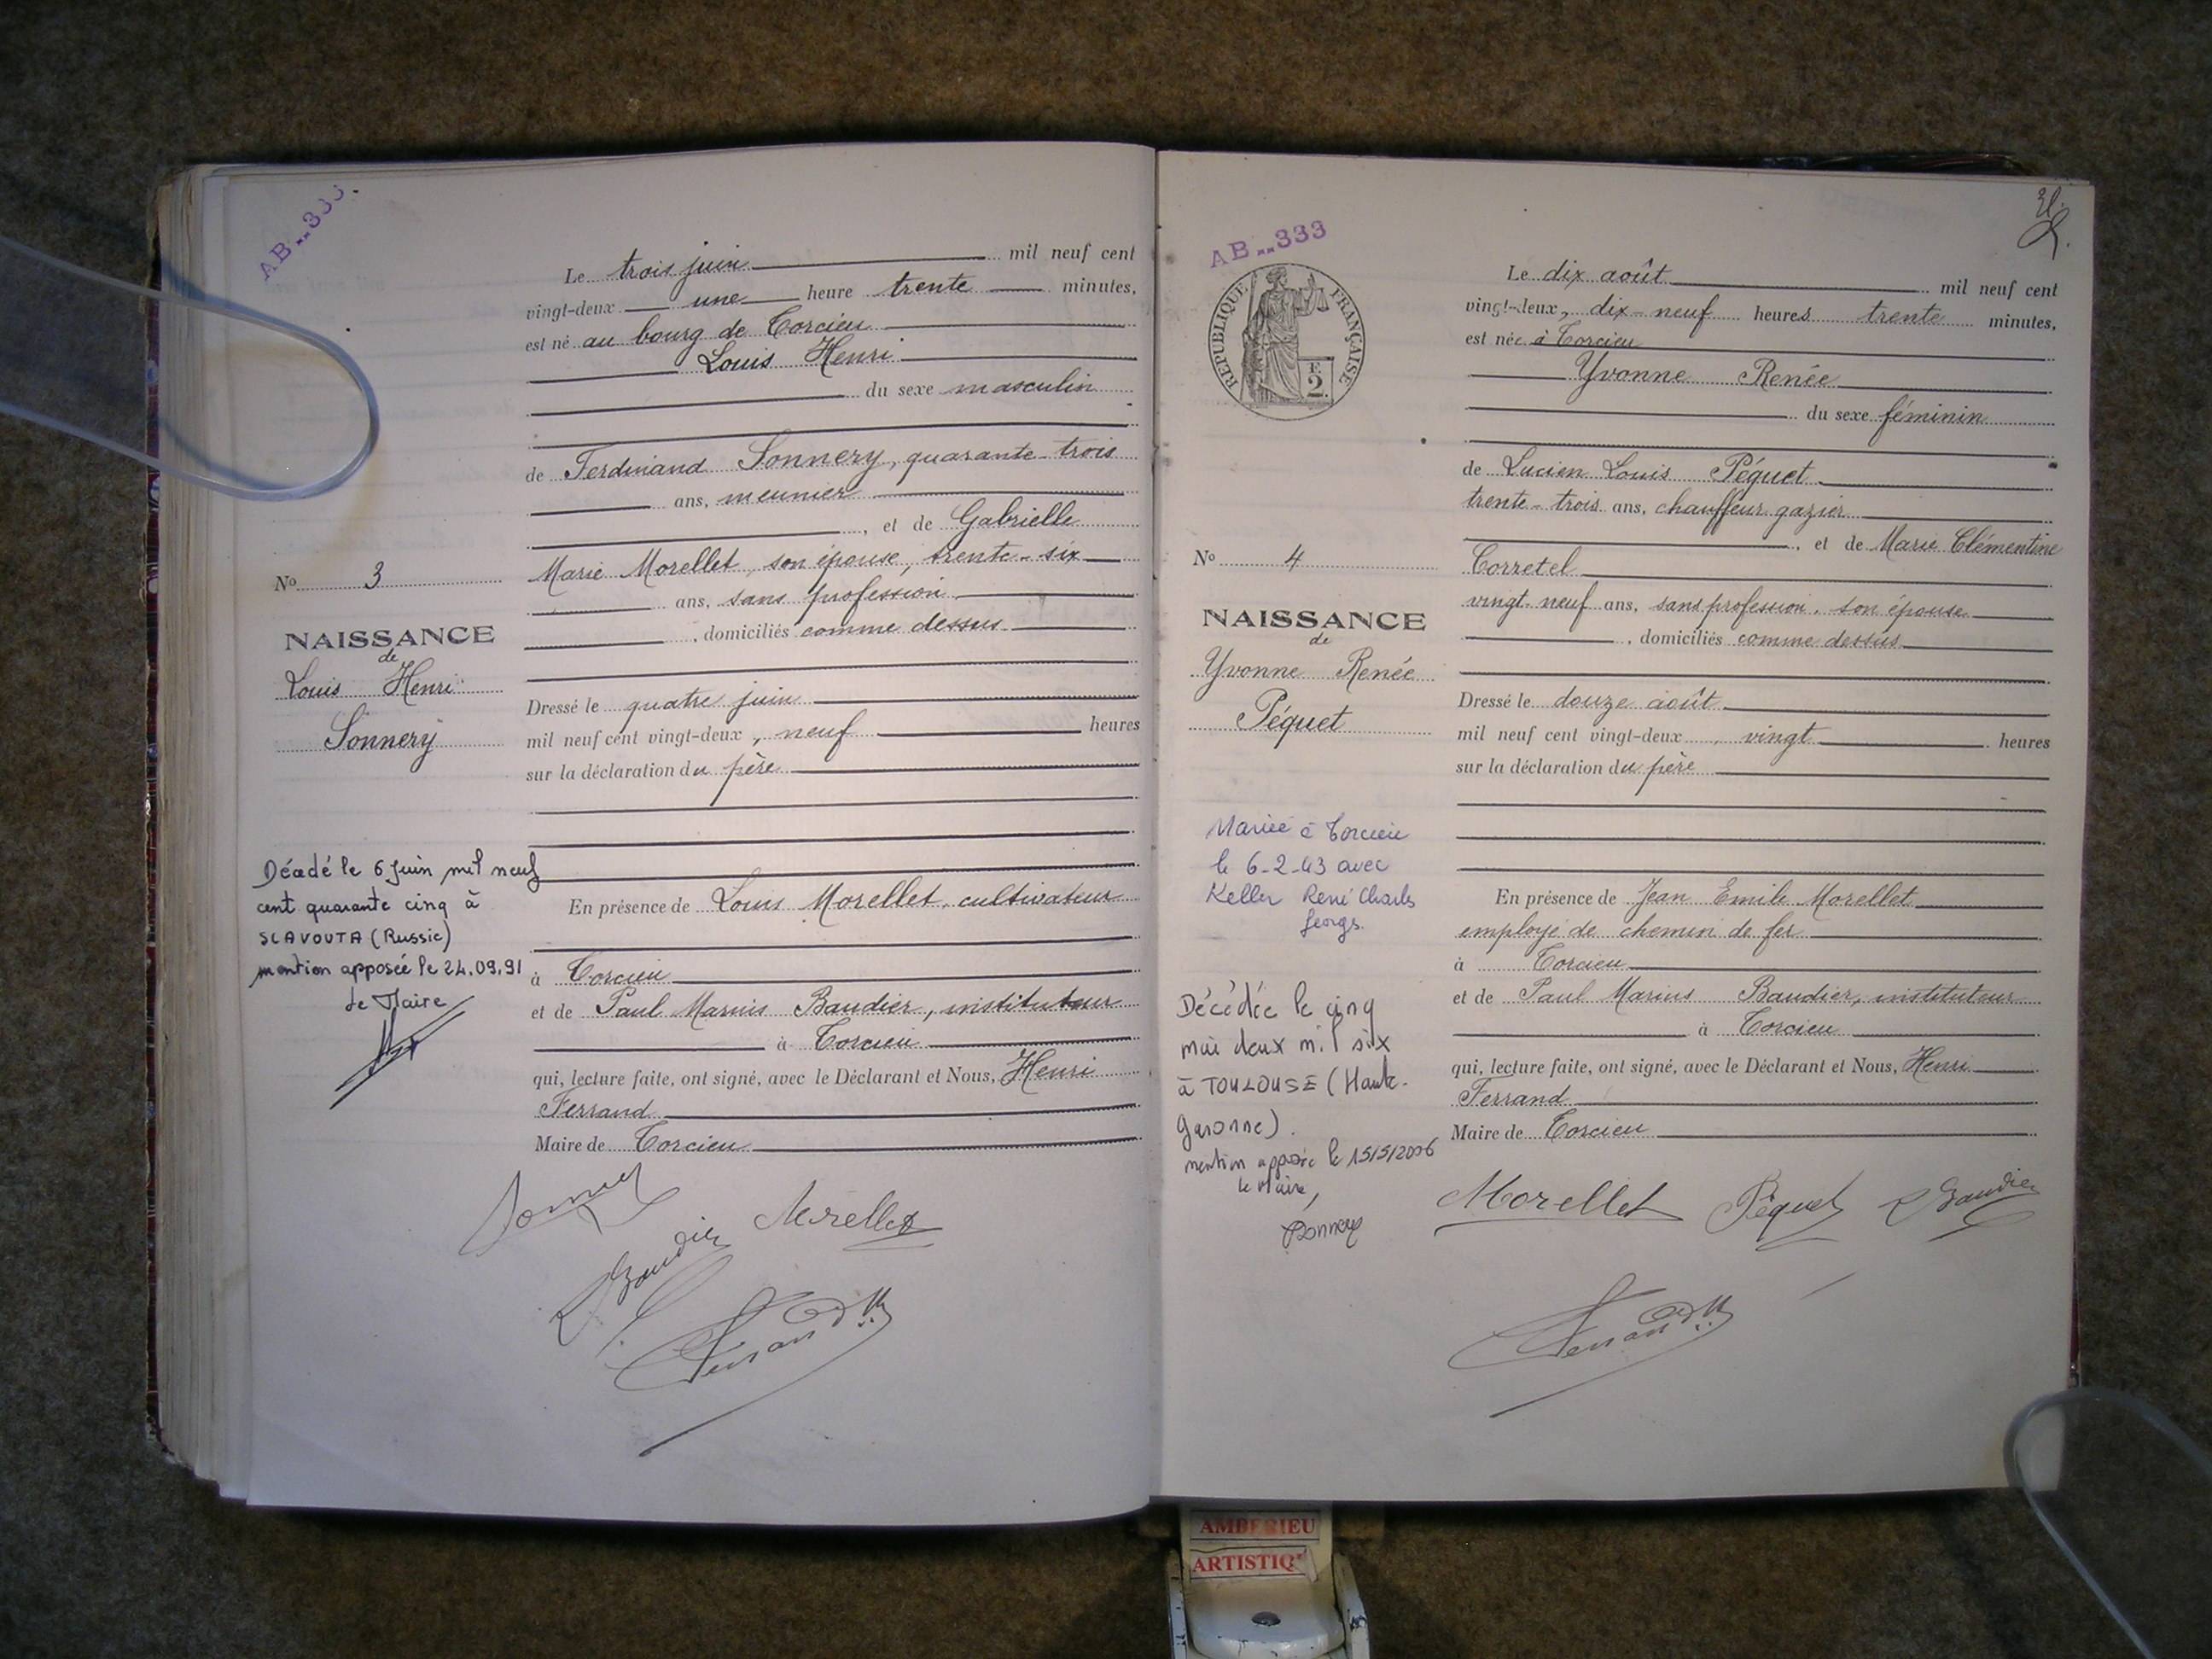 AB..333.
Le trois juin mil neuf cent
vingt-deux une heure trente minutes,
est né au bourg de Torcieu
Louis Henri
du sexe masculin
de Ferdinand Sonnery, quarante-trois
ans, meunier
, et de Gabrielle
Marie Morellet, son épouse, trente-six
ans, sans profession
, domiciliés comme dessus
No 3
NAISSANCE
de
Louis Henri
Sonnery
Dressé le quatre juin
mil neuf cent vingt-deux, neuf heures
sur la déclaration du père
Décédé le 6 Juin mil neuf
cent quarante cinq à
SLAVOUTA (Russie)
mention apposée le 24.09.91
Le Maire
En présence de Louis Morellet, cultivateur
à Torcieu
et de Paul Marius Baudier, instituteur
à Torcieu
qui, lecture faite, ont signé, avec le Déclarant et Nous, Henri
Ferrand
Maire de Torcieu
Sonnery
Morellet
Baudier
Ferrand
AB..333
REPUBLIQUE FRANÇAISE
F.
2
Le dix août mil neuf cent
vingt-deux, dix-neuf heures trente minutes,
est née à Torcieu
Yvonne Renée
du sexe féminin
de Lucien Louis Péquet
trente-trois ans, chauffeur gazier
, et de Marie Clémentine
Corretel
vingt-neuf ans, sans profession, son épouse
, domiciliés comme dessus
No 4
NAISSANCE
de
Yvonne Renée
Péquet
Dressé le douze août
mil neuf cent vingt-deux, vingt heures
sur la déclaration du père
Mariée à Torcieu
le 6-2-43 avec
Keller René Charles
Georgs.
Décédée le cinq
mai deux mil six
à TOULOUSE (Haute-
Garonne).
mention apposée le 15/5/2006
le Maire,
En présence de Jean Emile Morellet
employé de chemin de fer
à Torcieu
et de Paul Marius Baudier, instituteur
à Torcieu
qui, lecture faite, ont signé, avec le Déclarant et Nous, Henri
Ferrand
Maire de Torcieu
Morellet Péquet Baudier
Ferrand
AMBERIEU
ARTISTIQ